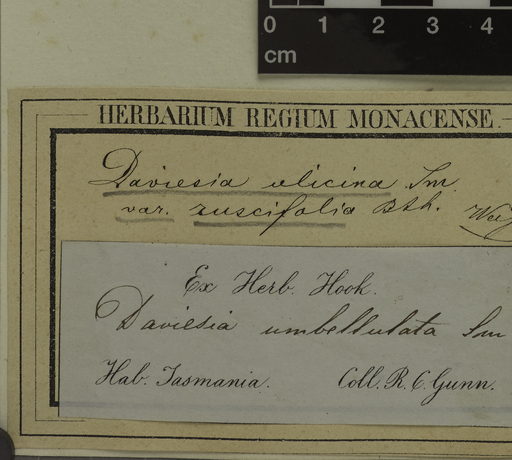 0 1 2 3 4
cm
HERBARIUM REGIUM MONACENSE.
Daviesia ulicina Sm
var. ruscifolia Bth.
Ex Herb. Hook.
Daviesia umbellulata Sm
Hab. Tasmania. Coll. R. C. Gunn.